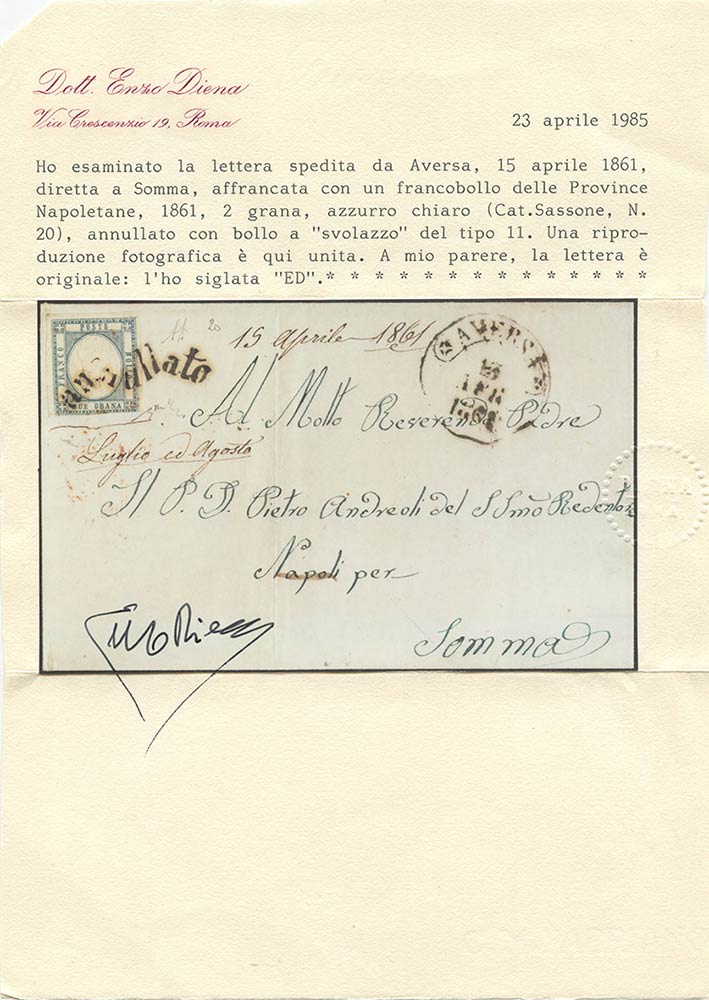 Dott. Enzo Diena
Via Crescenzio 19, Roma
23 aprile 1985
Ho esaminato la lettera spedita da Aversa, 15 aprile 1861,
diretta a Somma, affrancata con un francobollo delle Province
Napoletane, 1861, 2 grana, azzurro chiaro (Cat.Sassone, N.
20), annullato con bollo a "svolazzo" del tipo 11. Una ripro-
duzione fotografica è qui unita. A mio parere, la lettera è
originale: l'ho siglata "ED".* * * * * * * * * * * * * * *
FRANCO
POSTE
BOLLO
DUE GRANA
Annullato
20
15 Aprile 1861
AVERSA
15
APR
1861
Al Molto Reverendo Padre
Luglio ed Agosto
Il P. D. Pietro Andreoli del SSmo Redentore
Napoli per
Somma